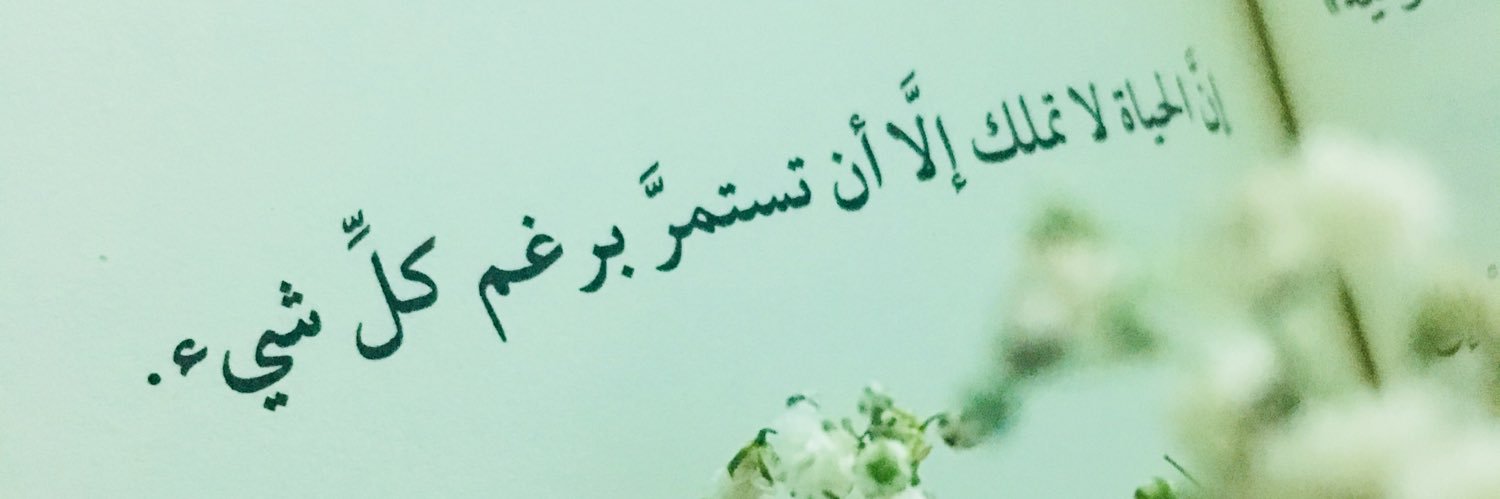 إنَّ الحياة لا تملك إلَّا أن تستمرَّ برغم كلِّ شيء.